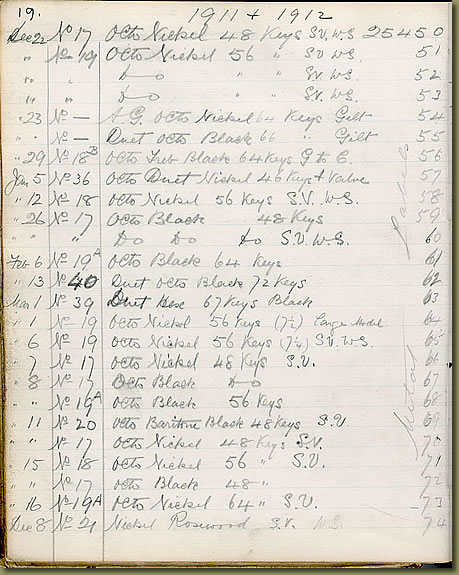 19. 1911 + 1912
Dec 22 No 17 Octo Nickel 48 Keys S.V. W.S. 25450
" No 19 Octo Nickel 56 " S.V. W.S. 51
" " " Do S.V. W.S. 52
" " " Do S.V. W.S. 53
" 23 No — A.G. Octo Nickel 64 Keys Gilt 54
" " No — Duet Octo Black 66 " Gilt 55
" 29 No 18B Octo Treb Black 64 Keys G to C. 56
Jan 5 No 36 Octo Duet Nickel 46 Keys + Valve 57
" 12 No 18 Octo Nickel 56 Keys S.V. W.S. 58
" 26 No 17 Octo Black 48 Keys 59
" " Do Do Do S.V. W.S. 60
Feb 6 No 19A Octo Black 64 Keys 61
" 13 No 40 Duet Octo Black 72 Keys 62
Mar 1 No 39 Duet Hexe 67 Keys Black 63
" 1 No 19 Octo Nickel 56 Keys (7½) Large Model 64
" 6 No 19 Octo Nickel 56 Keys (7½) S.V. W.S. 65
" 7 No 17 Octo Nickel 48 Keys S.V. 66
" 8 No 17 Octo Black Do 67
" No 19A Octo Black 56 Keys 68
" 11 No 20 Octo Baritone Black 48 Keys S.V. 69
" " No 17 Octo Nickel 48 Keys S.V. 70
" 15 No 18 Octo Nickel 56 " S.V. 71
" " No 17 Octo Black 48 " 72
" 16 No 19A Octo Nickel 64 " S.V. 73
Dec 8 No 21 Nickel Rosewood S.V. W.S. 74
Metal